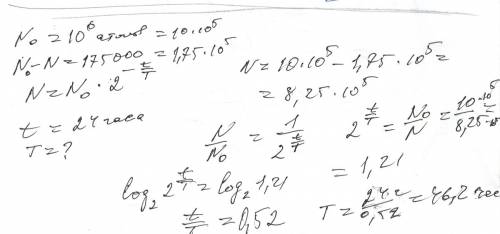 N₀ = 10⁶ атомов = 10·10⁵
N₀-N = 175000 = 1,75·10⁵
N = N₀ · 2^(-t/T)
t = 24 часа
T = ?
N = 10·10⁵ - 1,75·10⁵ =
= 8,25·10⁵
N/N₀ = 1/2^(t/T)
2^(t/T) = N₀/N = 10·10⁵/8,25·10⁵ =
= 1,21
log₂ 2^(t/T) = log₂ 1,21
t/T = 0,52
T = 24ч/0,52 = 46,2 час